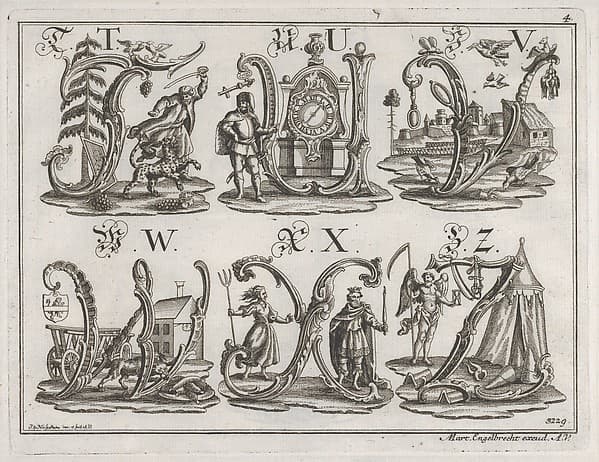 4.
T T. U U. V V.
W. W. X. X. Z. Z.
3229
Mart. Engelbrecht excud. A.V.